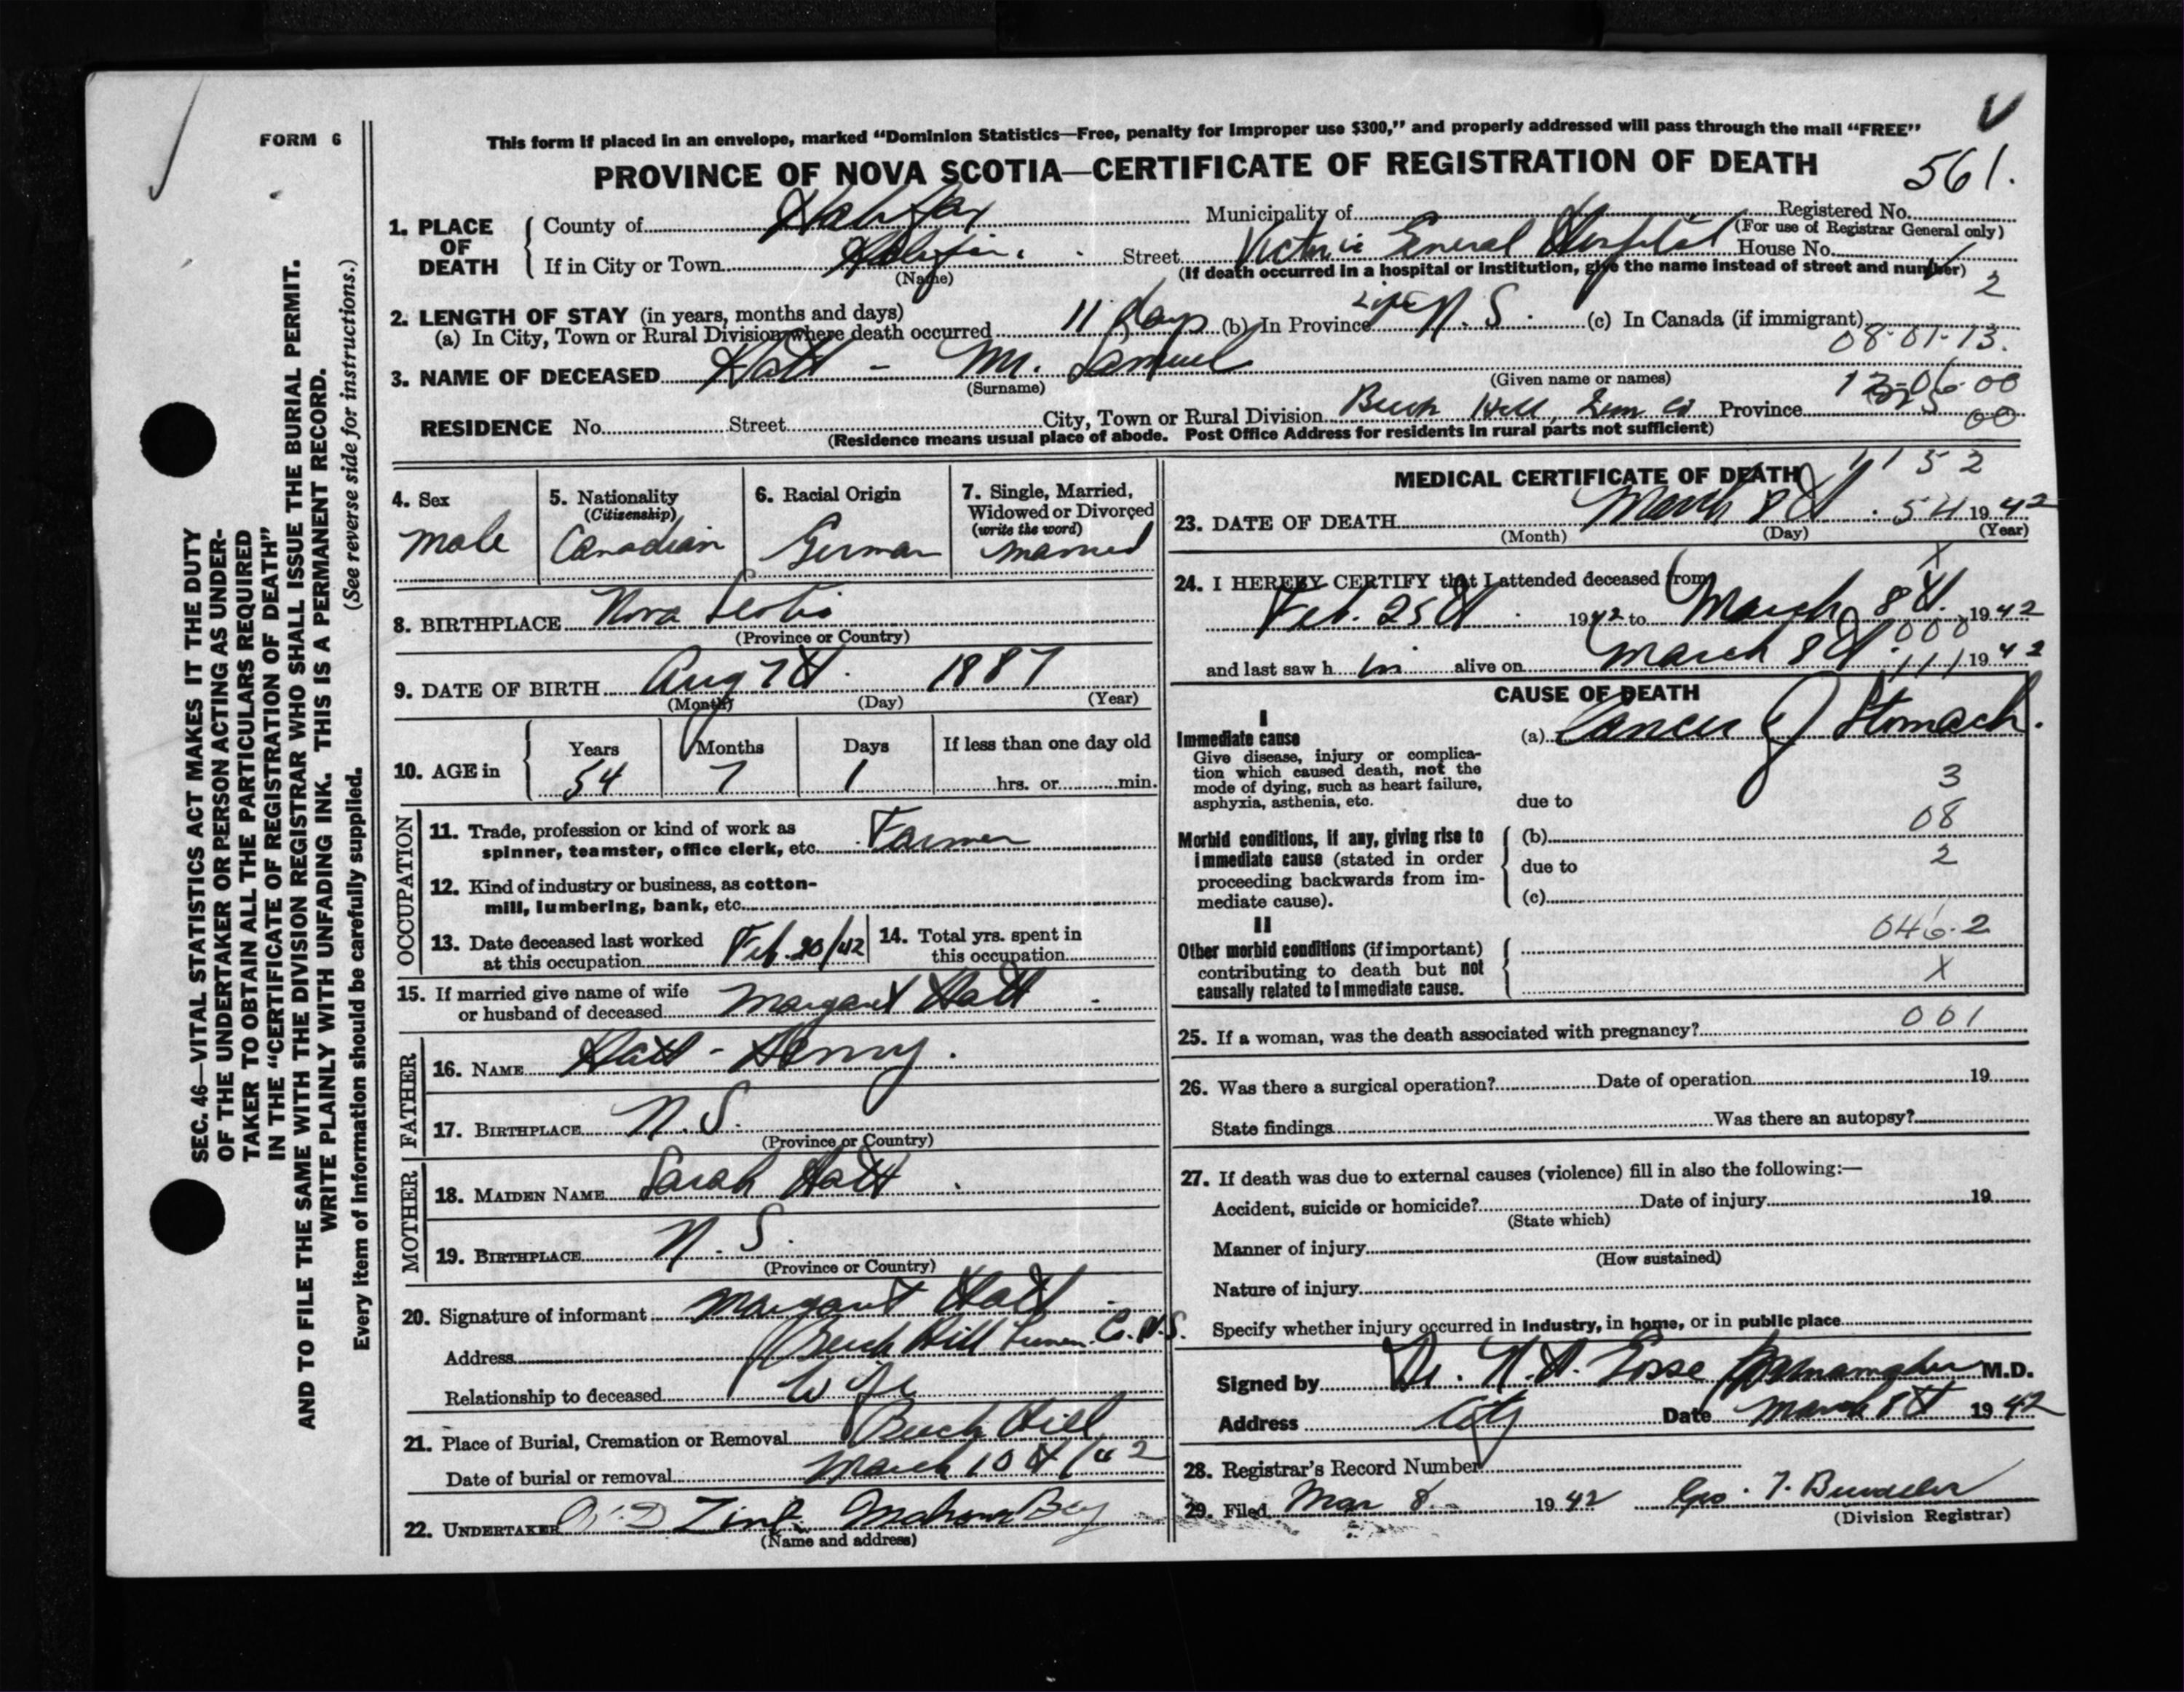 FORM 6
This form if placed in an envelope, marked “Dominion Statistics—Free, penalty for improper use $300,” and properly addressed will pass through the mail “FREE”
PROVINCE OF NOVA SCOTIA—CERTIFICATE OF REGISTRATION OF DEATH
561.
1. PLACE OF DEATH
County of Halifax Municipality of Registered No.
(For use of Registrar General only)
If in City or Town Halifax. Street Victoria General Hospital House No.
(Name) (If death occurred in a hospital or institution, give the name instead of street and number)
2
2. LENGTH OF STAY (in years, months and days)
(a) In City, Town or Rural Division where death occurred 11 days (b) In Province Life N. S. (c) In Canada (if immigrant)
08-01-13.
3. NAME OF DECEASED Hatt - Mr. Samuel
(Surname) (Given name or names)
RESIDENCE No. Street City, Town or Rural Division Beech Hill, Lun Co Province
00
(Residence means usual place of abode. Post Office Address for residents in rural parts not sufficient)
4. Sex
Male
5. Nationality
(Citizenship)
Canadian
6. Racial Origin
German
7. Single, Married,
Widowed or Divorced
(write the word)
Married
8. BIRTHPLACE Nova Scotia
(Province or Country)
9. DATE OF BIRTH Aug 7th. 1887
(Month) (Day) (Year)
10. AGE in
Years Months Days If less than one day old
54 7 1 hrs. or min.
OCCUPATION
11. Trade, profession or kind of work as
spinner, teamster, office clerk, etc. Farmer
12. Kind of industry or business, as cotton-
mill, lumbering, bank, etc.
13. Date deceased last worked
at this occupation Feb. 20/42
14. Total yrs. spent in
this occupation
15. If married give name of wife
or husband of deceased Margaret Hatt
FATHER
16. NAME Hatt - Henry.
17. BIRTHPLACE N. S.
(Province or Country)
MOTHER
18. MAIDEN NAME Sarah Hatt
19. BIRTHPLACE N. S.
(Province or Country)
20. Signature of informant Margaret Hatt
Address Beech Hill Lunen. Co. N.S.
Relationship to deceased Wife
21. Place of Burial, Cremation or Removal Beech Hill
Date of burial or removal March 10th/42
22. UNDERTAKER Zink Mahone Bay
(Name and address)
MEDICAL CERTIFICATE OF DEATH
1152
23. DATE OF DEATH March 8th. 54 1942
(Month) (Day) (Year)
X
24. I HEREBY CERTIFY that I attended deceased from
Feb. 25th. 1942 to March 8th. 1942
000
and last saw h im alive on March 8th. 1942
111
CAUSE OF DEATH
I
Immediate cause
Give disease, injury or complica-
tion which caused death, not the
mode of dying, such as heart failure,
asphyxia, asthenia, etc.
(a) Cancer of Stomach.
3
due to
08
Morbid conditions, if any, giving rise to
immediate cause (stated in order
proceeding backwards from im-
mediate cause).
(b)
2
due to
(c)
II
Other morbid conditions (if important)
contributing to death but not
causally related to immediate cause.
046.2
X
001
25. If a woman, was the death associated with pregnancy?
26. Was there a surgical operation? Date of operation 19
State findings Was there an autopsy?
27. If death was due to external causes (violence) fill in also the following:—
Accident, suicide or homicide? Date of injury 19
(State which)
Manner of injury
(How sustained)
Nature of injury
Specify whether injury occurred in industry, in home, or in public place
Signed by Dr. N. H. Gosse M.D.
Address City Date March 8th 1942
28. Registrar's Record Number
29. Filed Mar 8 1942 Geo.
(Division Registrar)
SEC. 46—VITAL STATISTICS ACT MAKES IT THE DUTY
OF THE UNDERTAKER OR PERSON ACTING AS UNDER-
TAKER TO OBTAIN ALL THE PARTICULARS REQUIRED
IN THE “CERTIFICATE OF REGISTRATION OF DEATH”
AND TO FILE THE SAME WITH THE DIVISION REGISTRAR WHO SHALL ISSUE THE BURIAL PERMIT.
WRITE PLAINLY WITH UNFADING INK. THIS IS A PERMANENT RECORD.
(See reverse side for instructions.)
Every item of information should be carefully supplied.